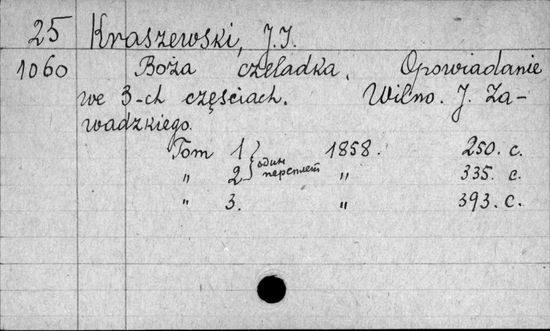 25 Kraszewski, J.I.
1060 Boża czeladka. Opowiadanie
we 3-ch częściach. Wilno. J. Za-
wadzkiego.
Tom 1 } один 1858. 250. с.
" 2 } переплет " 335. с.
" 3. " 393. с.